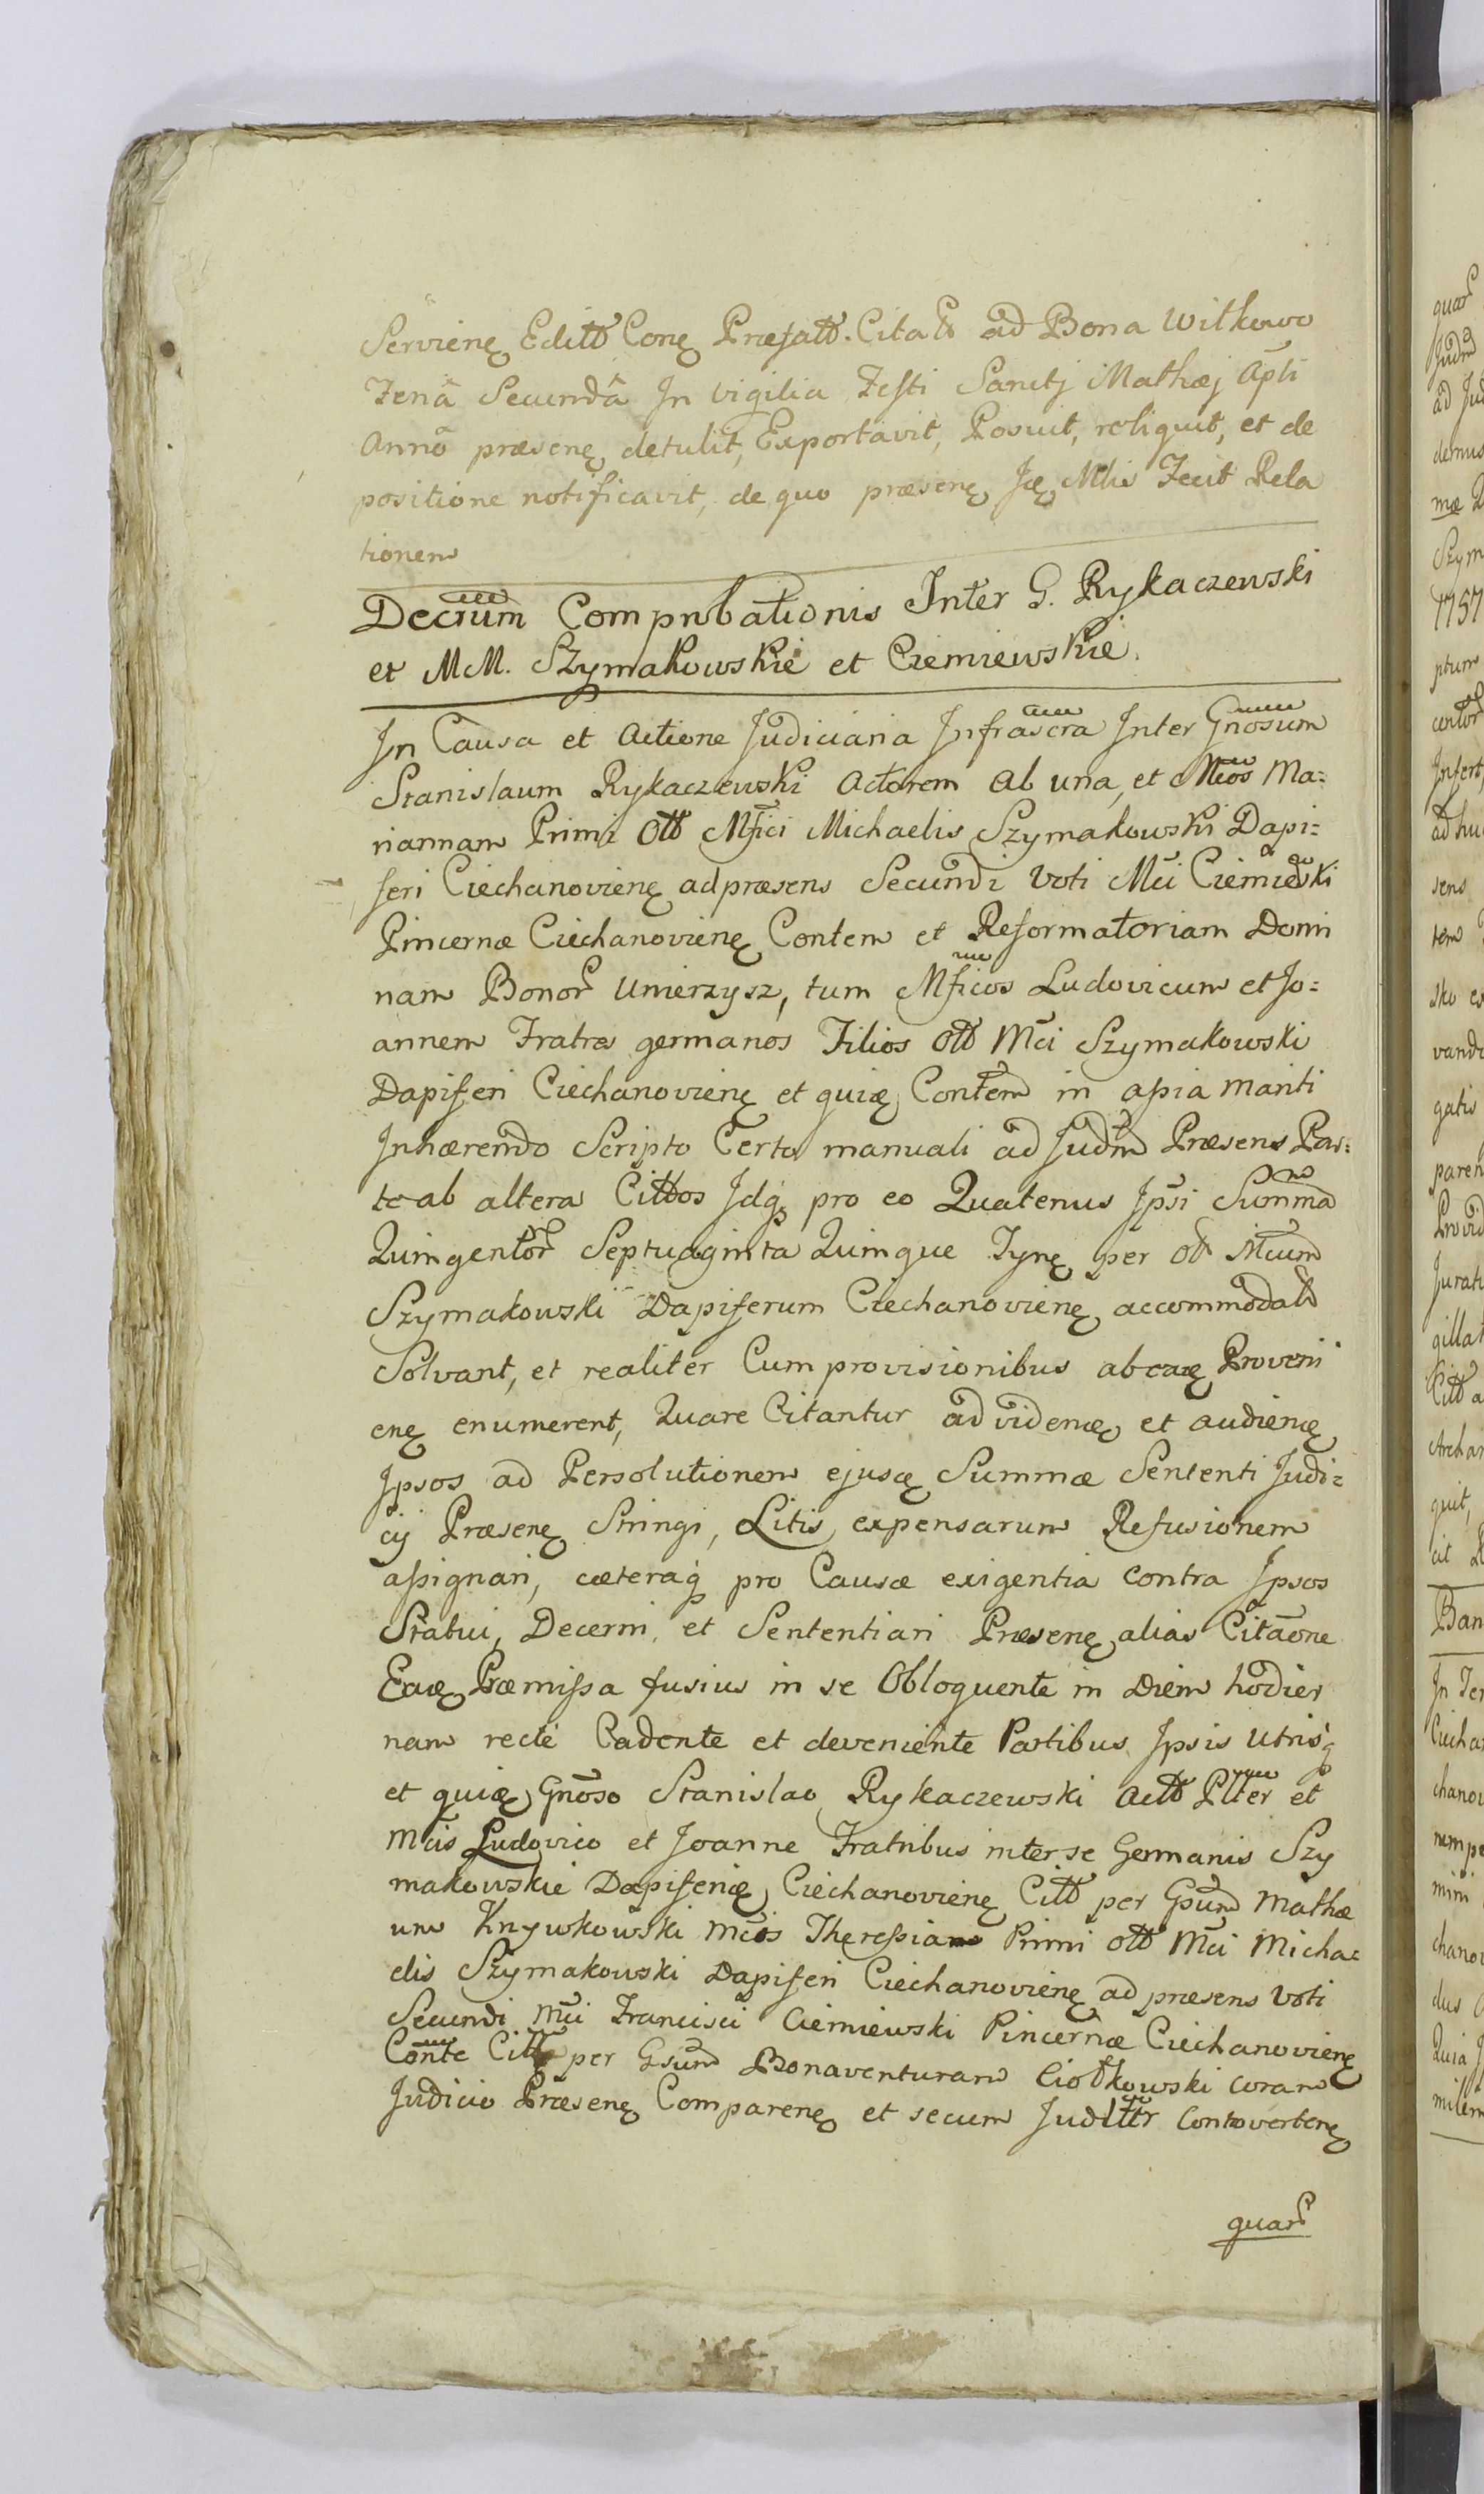 Servienę Editt Conę Præfatt. Citatt ad Bona Witkowo
Feriâ Secundâ In vigilia Festi Sanctj Mathæj Apłi
Anno præsenę detulit, Exportavit, Posuit, reliquit, et de
positione notificavit, de quo præsenę Ję Mlis Fecit Rela
tionem
Decrum Comprobationis Inter G. Rykaczewski
et M M. Szymakowskie et Ciemiewskie.
In Causa et Actione Judiciaria Infrascra Inter Gnosum
Stanislaum Rykaczewski Actorem ab una, et Mcos Ma=
riannam Primi Ott Mfici Michaelis Szymakowski Dapi=
feri Ciechanovienę ad præsens Secundi Voti Mci Ciemiewski
Pincernæ Ciechanovienę Contem et Reformatoriam Domi
nam Bonor Unierzysz, tum Mficos Ludovicum et Jo=
annem Fratres germanos Filios Ott Mci Szymakowski
Dapiferi Ciechanovienę et quię Contem in aßia Mariti
Inhærendo Scripto Certo manuali ad Judm Præsens Par=
te ab altera Cittos Idq. pro eo Quatenus Ipsi Summa
Quingentor Septuaginta Quinque Tynę per ott Mcum
Szymakowski Dapiferum Ciechanovienę accommodatt
Solvant, et realiter Cum provisionibus ab eaę Proveni
enę enumerent, Quare Citantur ad videnę et audienę
Ipsos ad Persolutionem ejusę Summæ Sententi Judi=
cij Præsenę Stringi, Litis, expensarum Refusionem
aßignari, cæteraq pro Causæ exigentia Contra Ipsos
Statui, Decerni, et Sententiari Præsenę alias Citaone
Eaę Præmißa fusius in se Obloquente in Diem hodier
nam recte Cadente et deveniente Partibus Ipsis Utrisq
et quię Gnoso Stanislao Rykaczewski Actt Plter et
Mcis Ludovico et Joanne Fratribus inter se Germanis Szy
makowskie Dapiferię Ciechanovienę Citt per Gsum Mathæ
um Knywkowski Mcos Thereßiam Primi ott Mci Micha=
elis Szymakowski Dapiferi Ciechanovienę ad præsens Voti
Secundi Mci Francisci Ciemiewski Pincernæ Ciechanovienę
Conte Citt per Gsum Bonaventuram Ciołkowski coram
Judicio Præsenę Comparenę et secum Juditter Controvertenę
quar